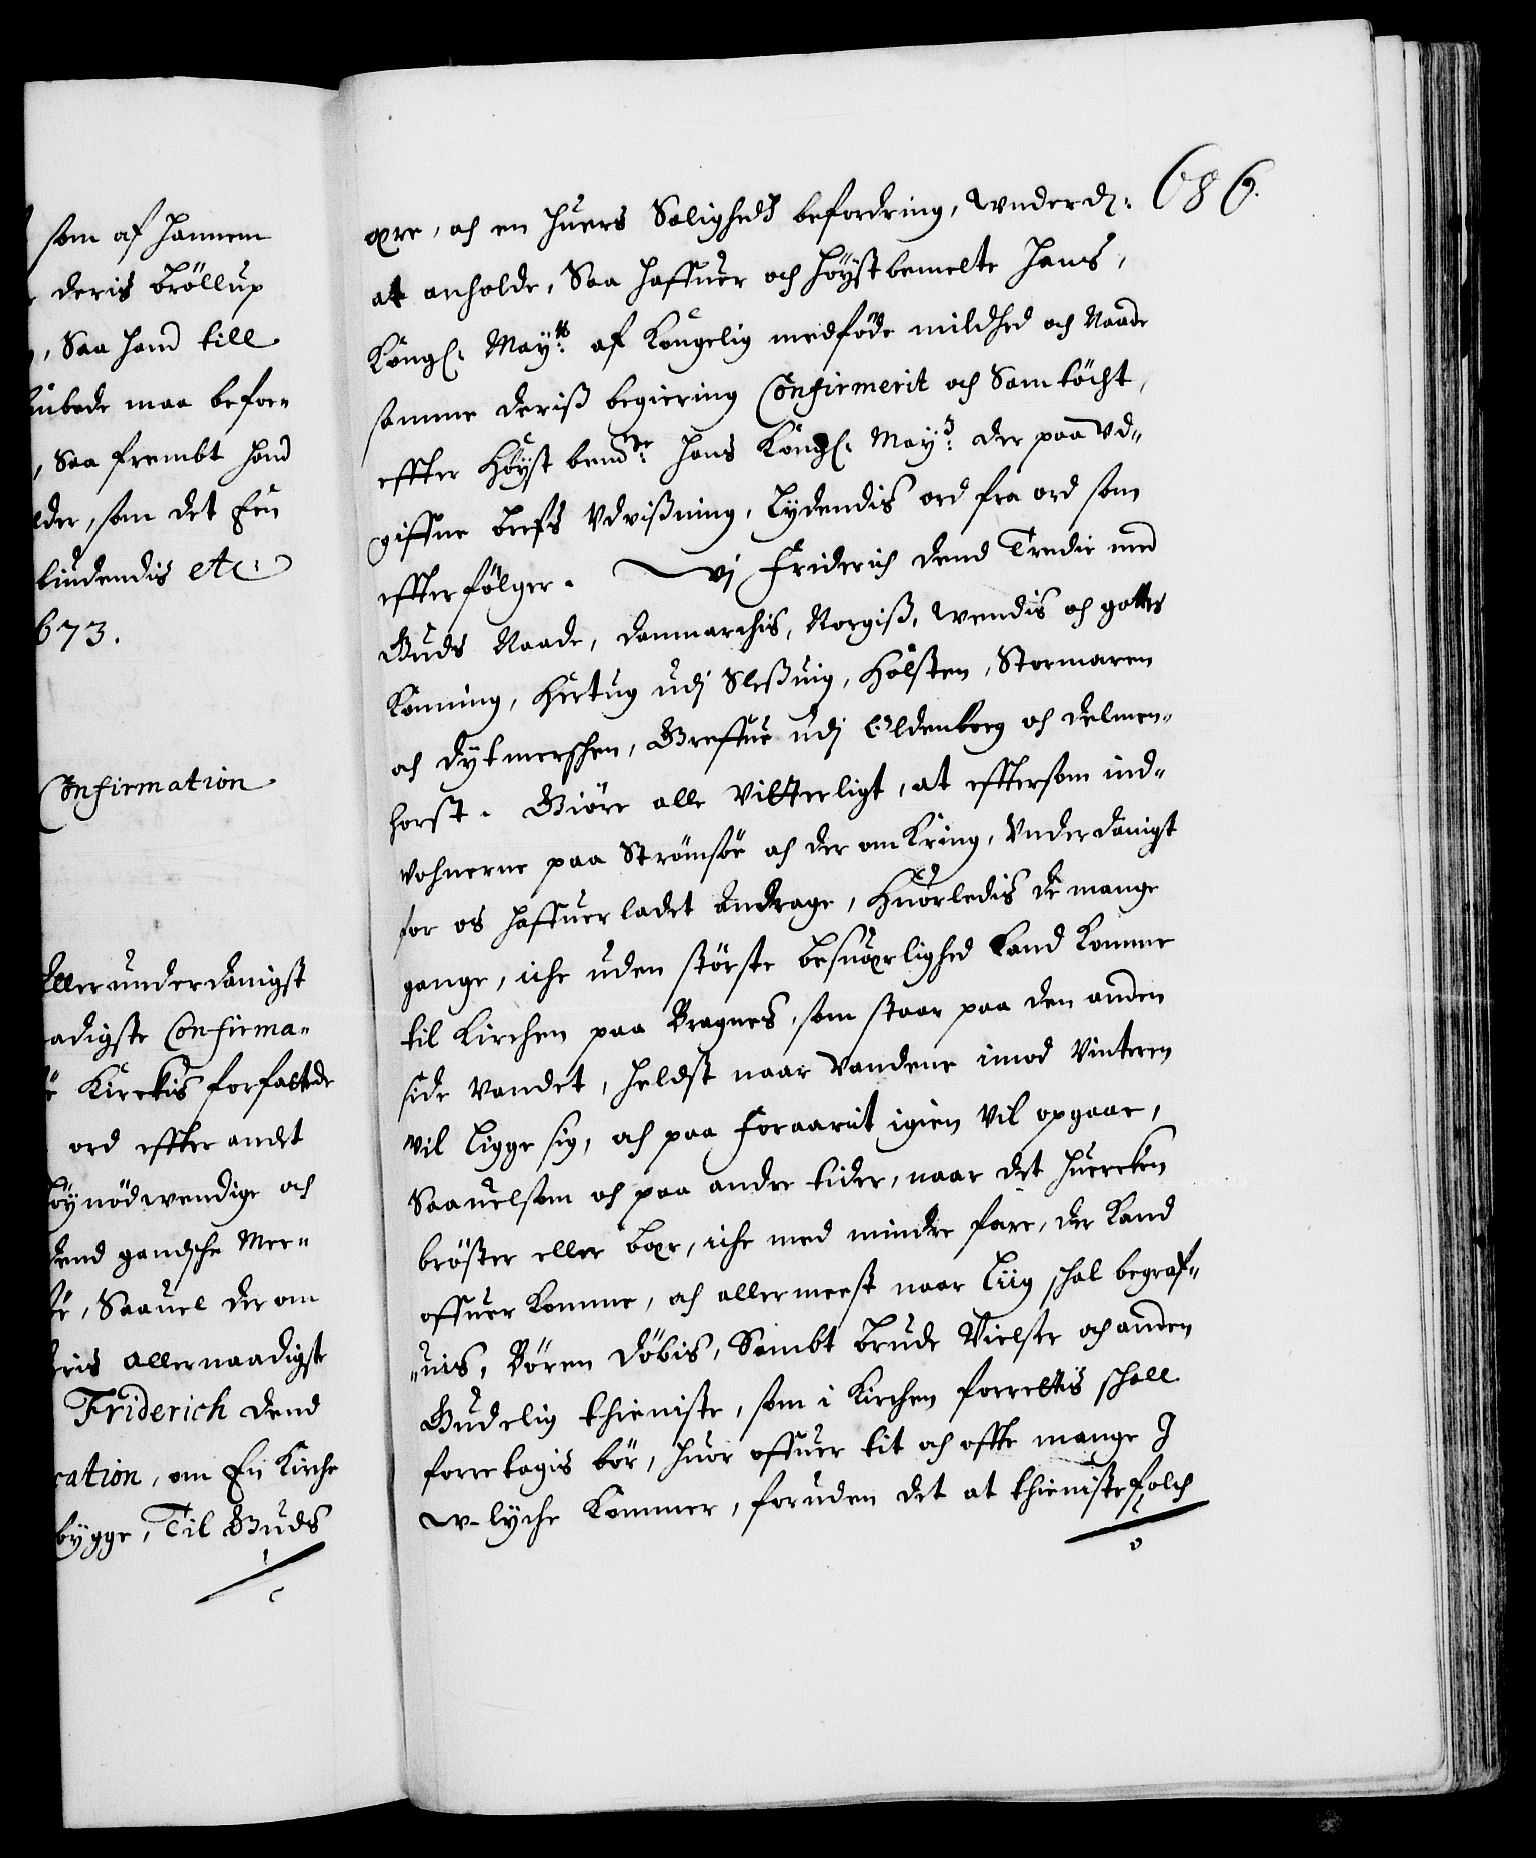 som af hannem
deris bröllup
, Saa hand till
bude maa befor=
, Saa frembt hand
som det Een
bindendis etc:
673.
Confirmation
Allerunderdanigst
naadigste Confirma=
Kirckis forfattede
ord effter andet
höynödwendige och
dend gandsche Mee=
Saauel der om
deris allernaadigste
Friderich dend
cation, om En Kirche
bygge, Til Guds
686.
ære, och en huers Salighedz befordring, Wnderd:
at anholde, Saa haffuer och höÿstbemelte Hans,
Kongl: Maytt: af Kongelig medföde mildhed och Naade
samme deriß begiering Confirmerit och Samtöcht,
effter Höyst bemte: Hans Kongl: Mays: der paa Vd=
giffne brefs Vdvißning, Lydendis ord fra ord som
effterfölger. Vi Friderich dend Tredie med
Guds Naade, Danmarchis, Norgiß, Wendis och gottes
Konning, Hertug udj Sleßuig, Holsten, Stormaren
och Dytmerschen, Greffue udj Oldenborg och Delmen=
horst. Giöre alle Vitterligt, at efftersom ind=
vohnerne paa Strömsöe och der omkring, Underdanigst
for os haffuer ladet andrage, Huorledis de mange
gange, iche uden störste besuærlighed kand komme
til Kirchen paa Bragnes, som staar paa den anden
side Vandet, heldst naar Vandene imod Vinteren
Vil ligge sig, och paa Foraarit igien Vil opgaae,
Saauelsom och paa andre tider, naar det huercken
bröster eller bær, iche med mindre fare, der kand
offuer komme, och allermeest naar Liig schal begraf=
=uis, Bören döbis, Sambt brude Vielse och anden
Gudelig thieniste, som i Kirchen forrettis schall
forretagis bör, huor offuer tit och offte mange J
W-lyche kommer, foruden det at thienistefolch